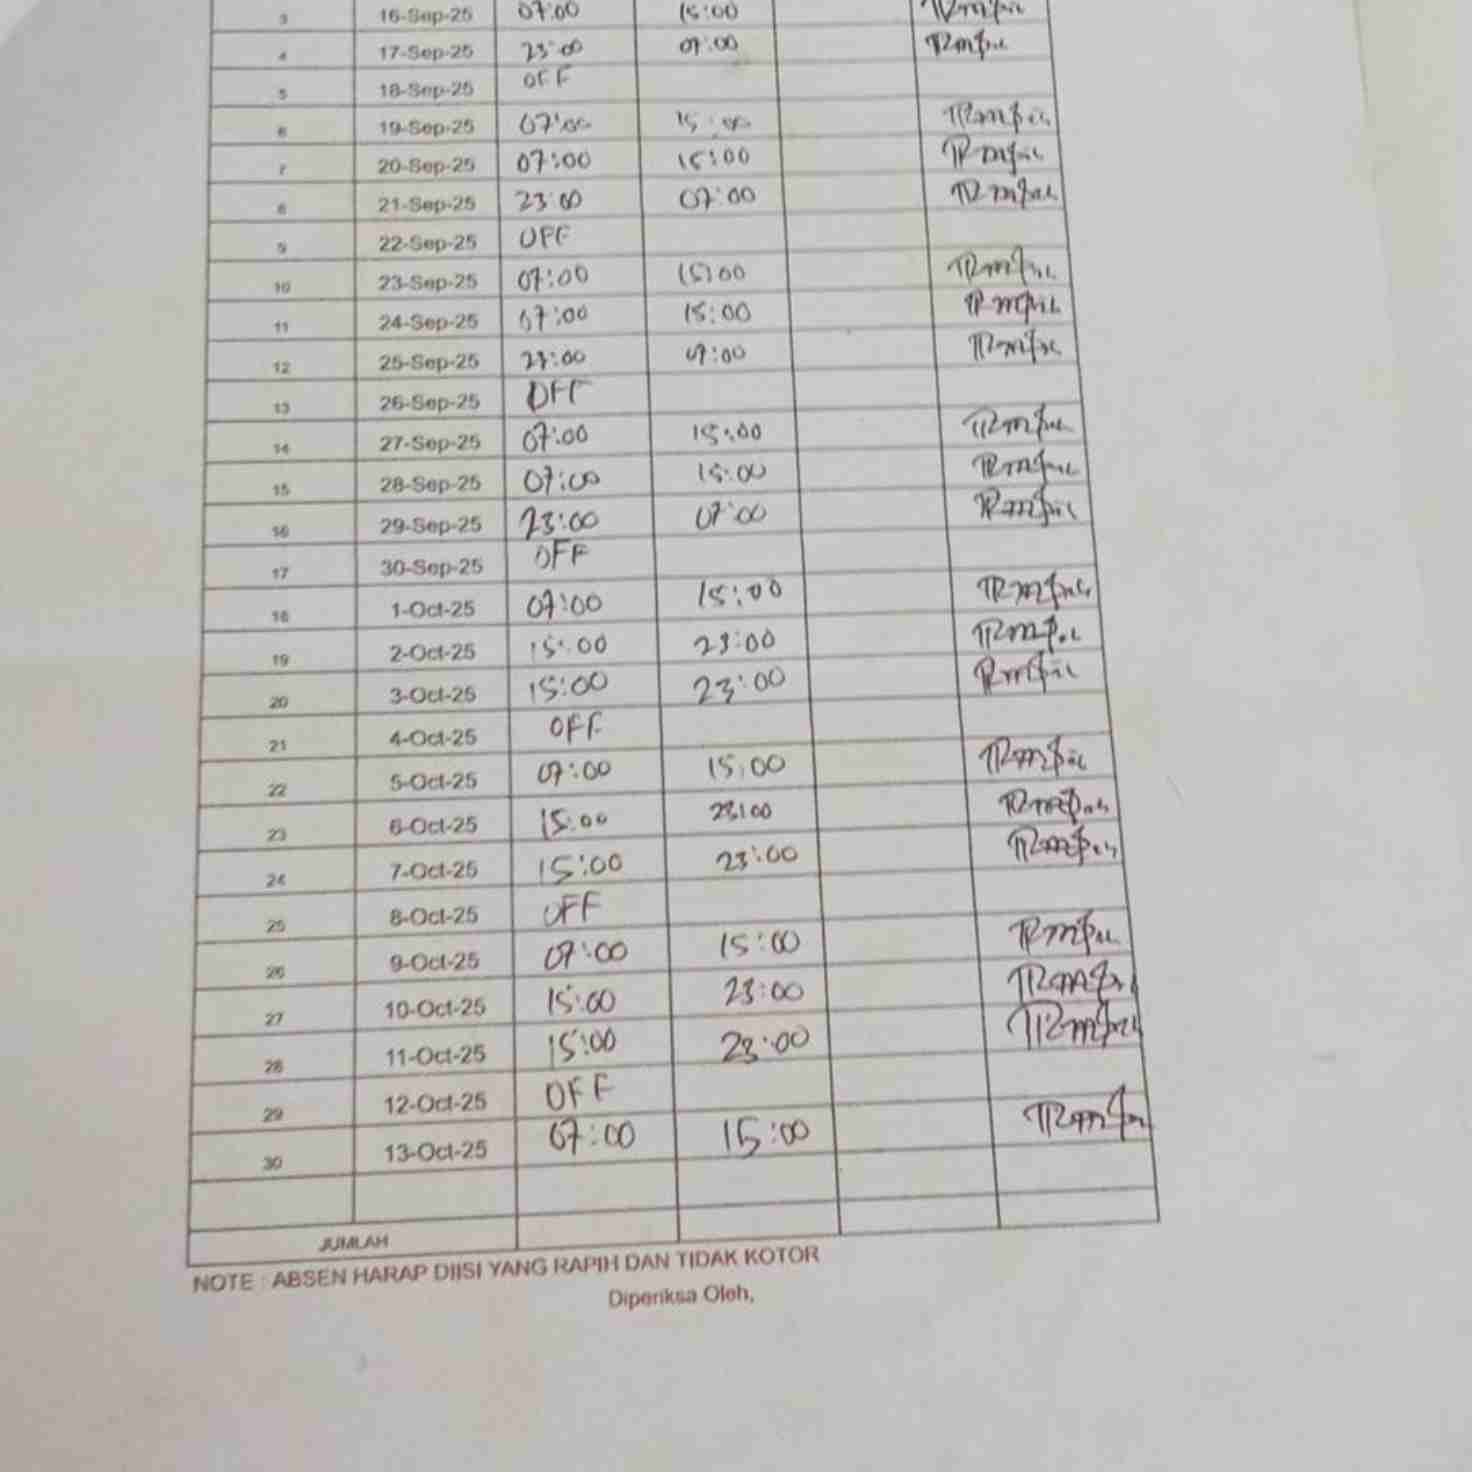 3 16-Sep-25 07:00 15:00
4 17-Sep-25 23:00 07:00
5 18-Sep-25 OFF
6 19-Sep-25 07:00 15:00
7 20-Sep-25 07:00 15:00
8 21-Sep-25 23:00 07:00
9 22-Sep-25 OFF
10 23-Sep-25 07:00 15:00
11 24-Sep-25 07:00 15:00
12 25-Sep-25 23:00 07:00
13 26-Sep-25 OFF
14 27-Sep-25 07:00 15:00
15 28-Sep-25 07:00 15:00
16 29-Sep-25 23:00 07:00
17 30-Sep-25 OFF
18 1-Oct-25 07:00 15:00
19 2-Oct-25 15:00 23:00
20 3-Oct-25 15:00 23:00
21 4-Oct-25 OFF
22 5-Oct-25 07:00 15:00
23 6-Oct-25 15:00 23:00
24 7-Oct-25 15:00 23:00
25 8-Oct-25 OFF
26 9-Oct-25 07:00 15:00
27 10-Oct-25 15:00 23:00
28 11-Oct-25 15:00 23:00
29 12-Oct-25 OFF
30 13-Oct-25 07:00 15:00
JUMLAH
NOTE : ABSEN HARAP DIISI YANG RAPIH DAN TIDAK KOTOR
Diperiksa Oleh,